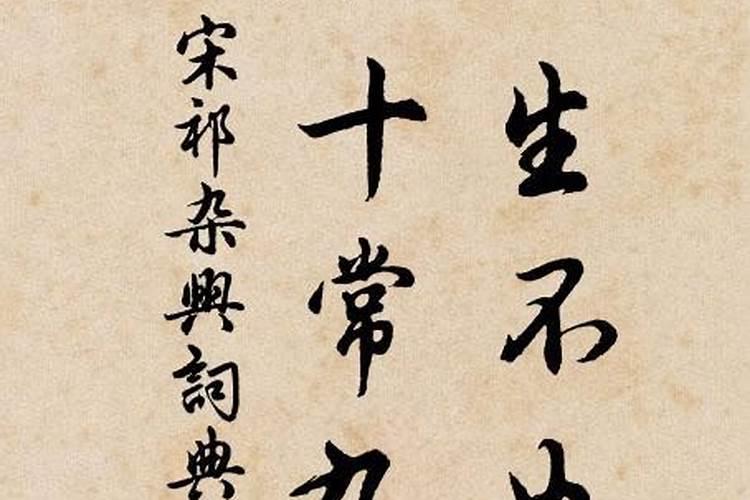 生不
十常
宋祁杂興詞典